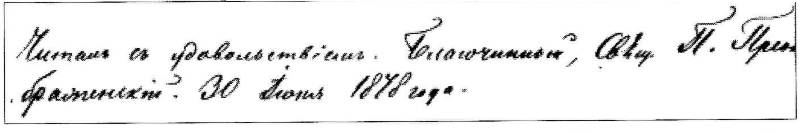 Читалъ съ удовольствіемъ. Благочинный, Свящ. П. Прео
браженскій. 30 Іюня 1878 года.